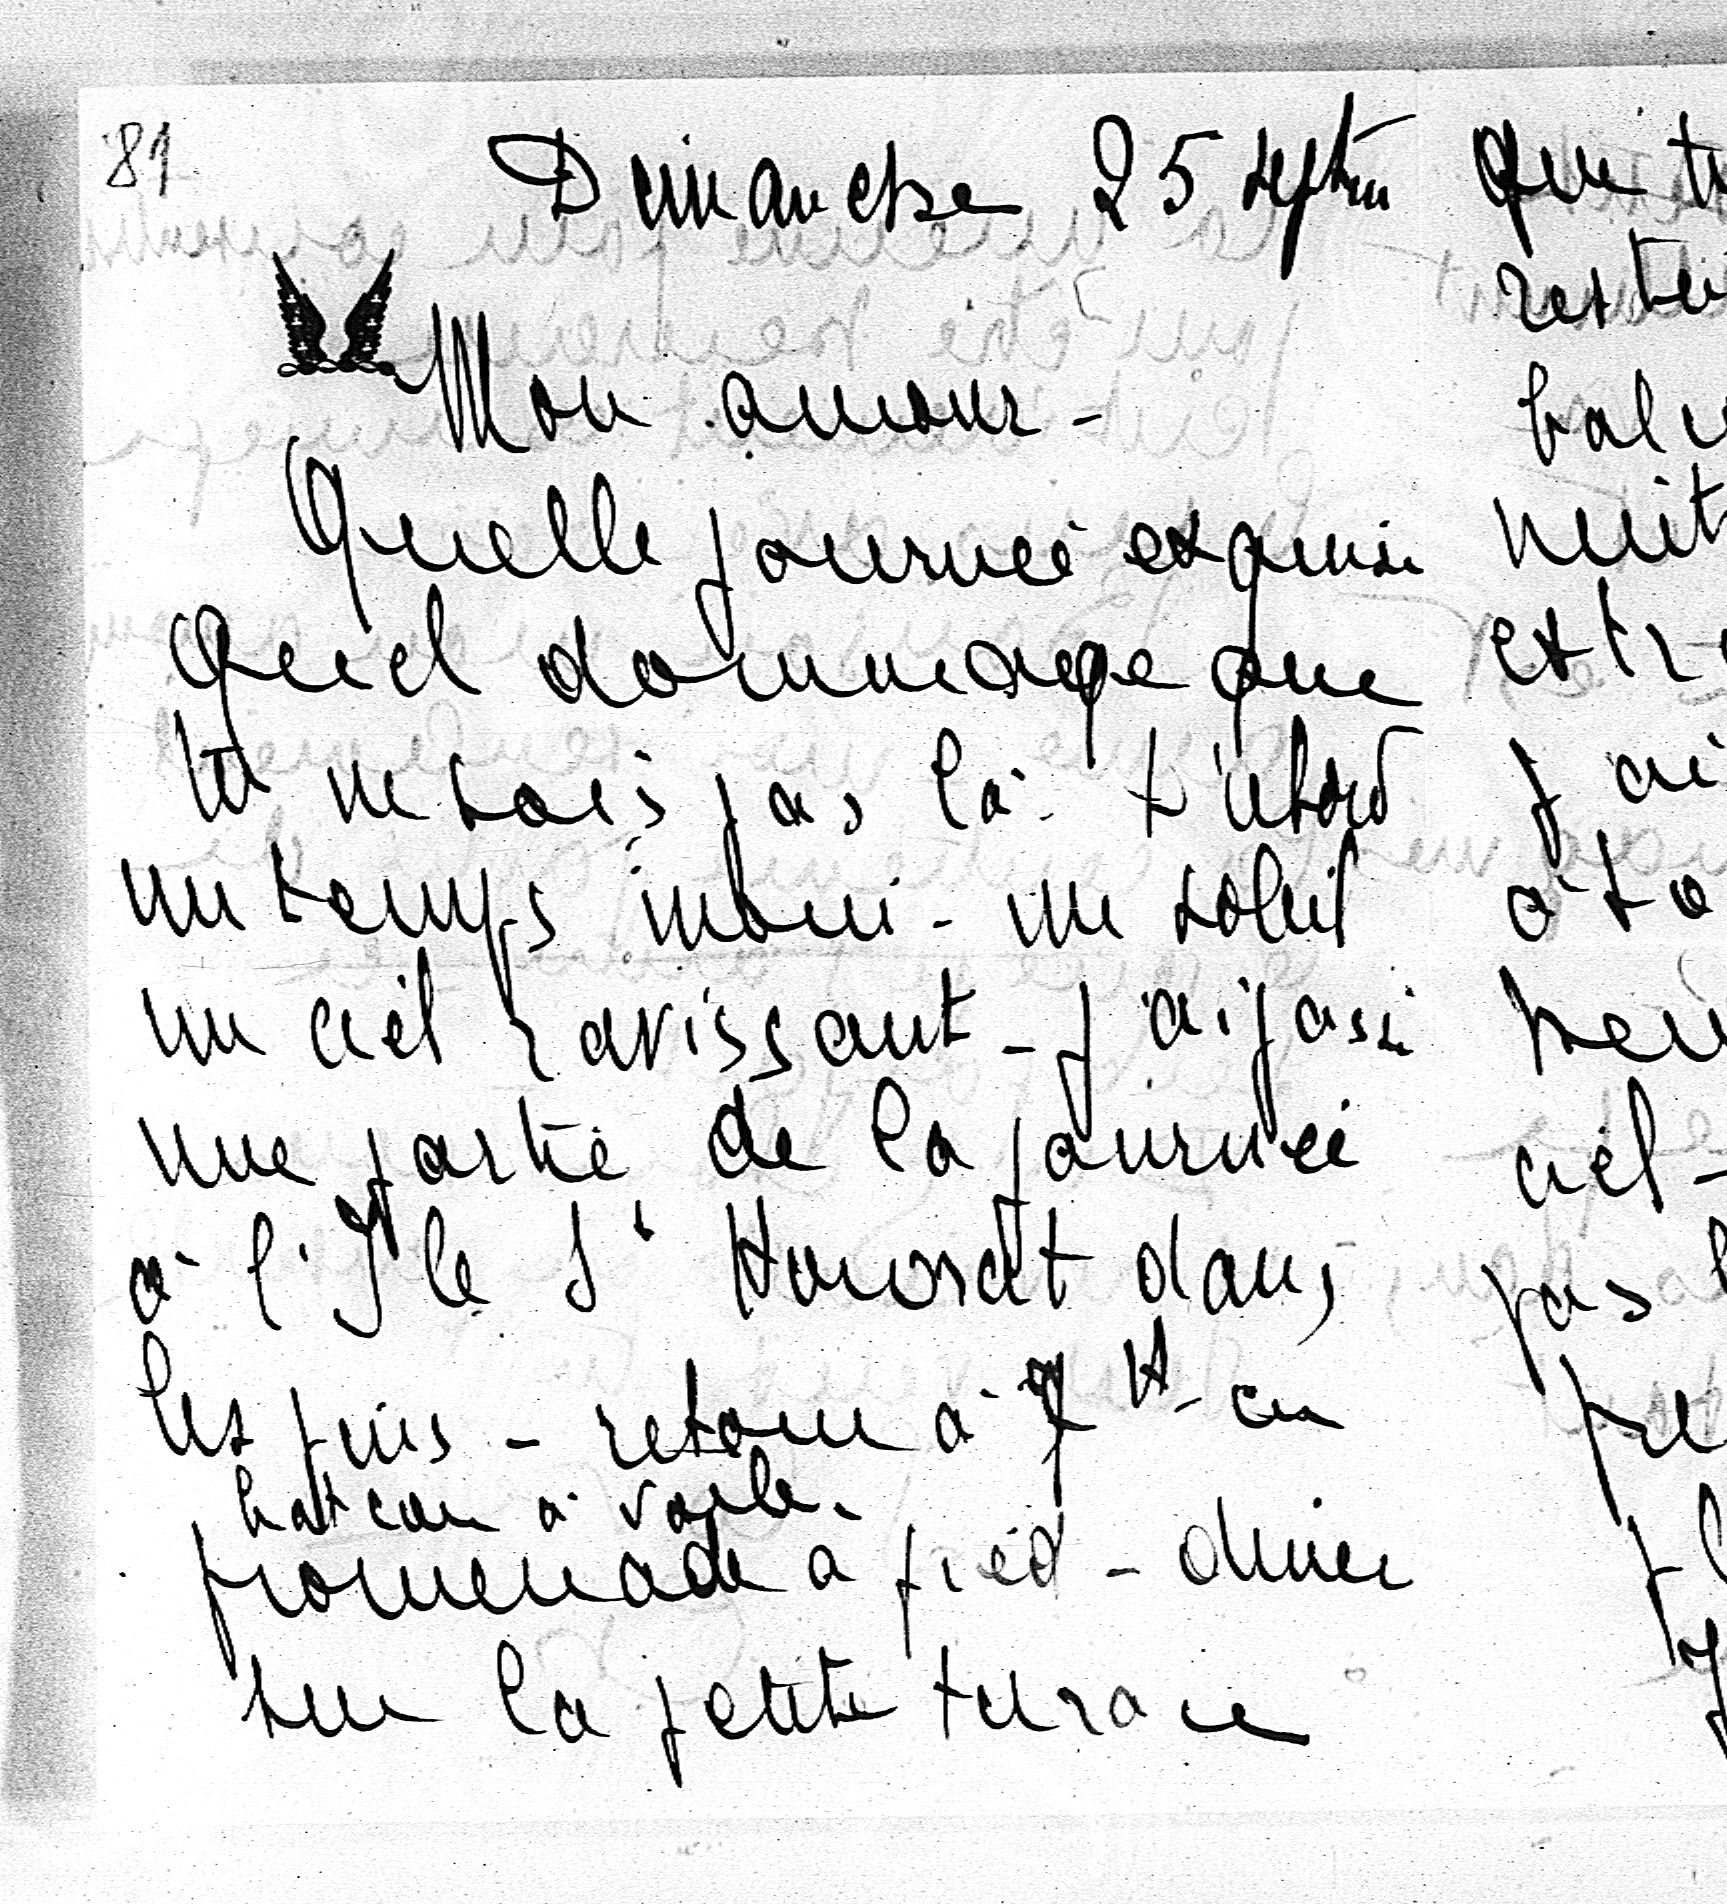 81
Dimanche 25 septem
Mon amour -
Quelle journée exquise
Quel dommage que
tu ne sois pas là - d'abord
un temps inouï - un soleil
un ciel ravissant - j'ai passé
une partie de la journée
à l'Ile St Honorat dans
les pins - retour à 7 H - en
bateau à voile -
promenade à pied - diner
sur la petite terrasse
qui
nuit
j'ai
ciel -
pas